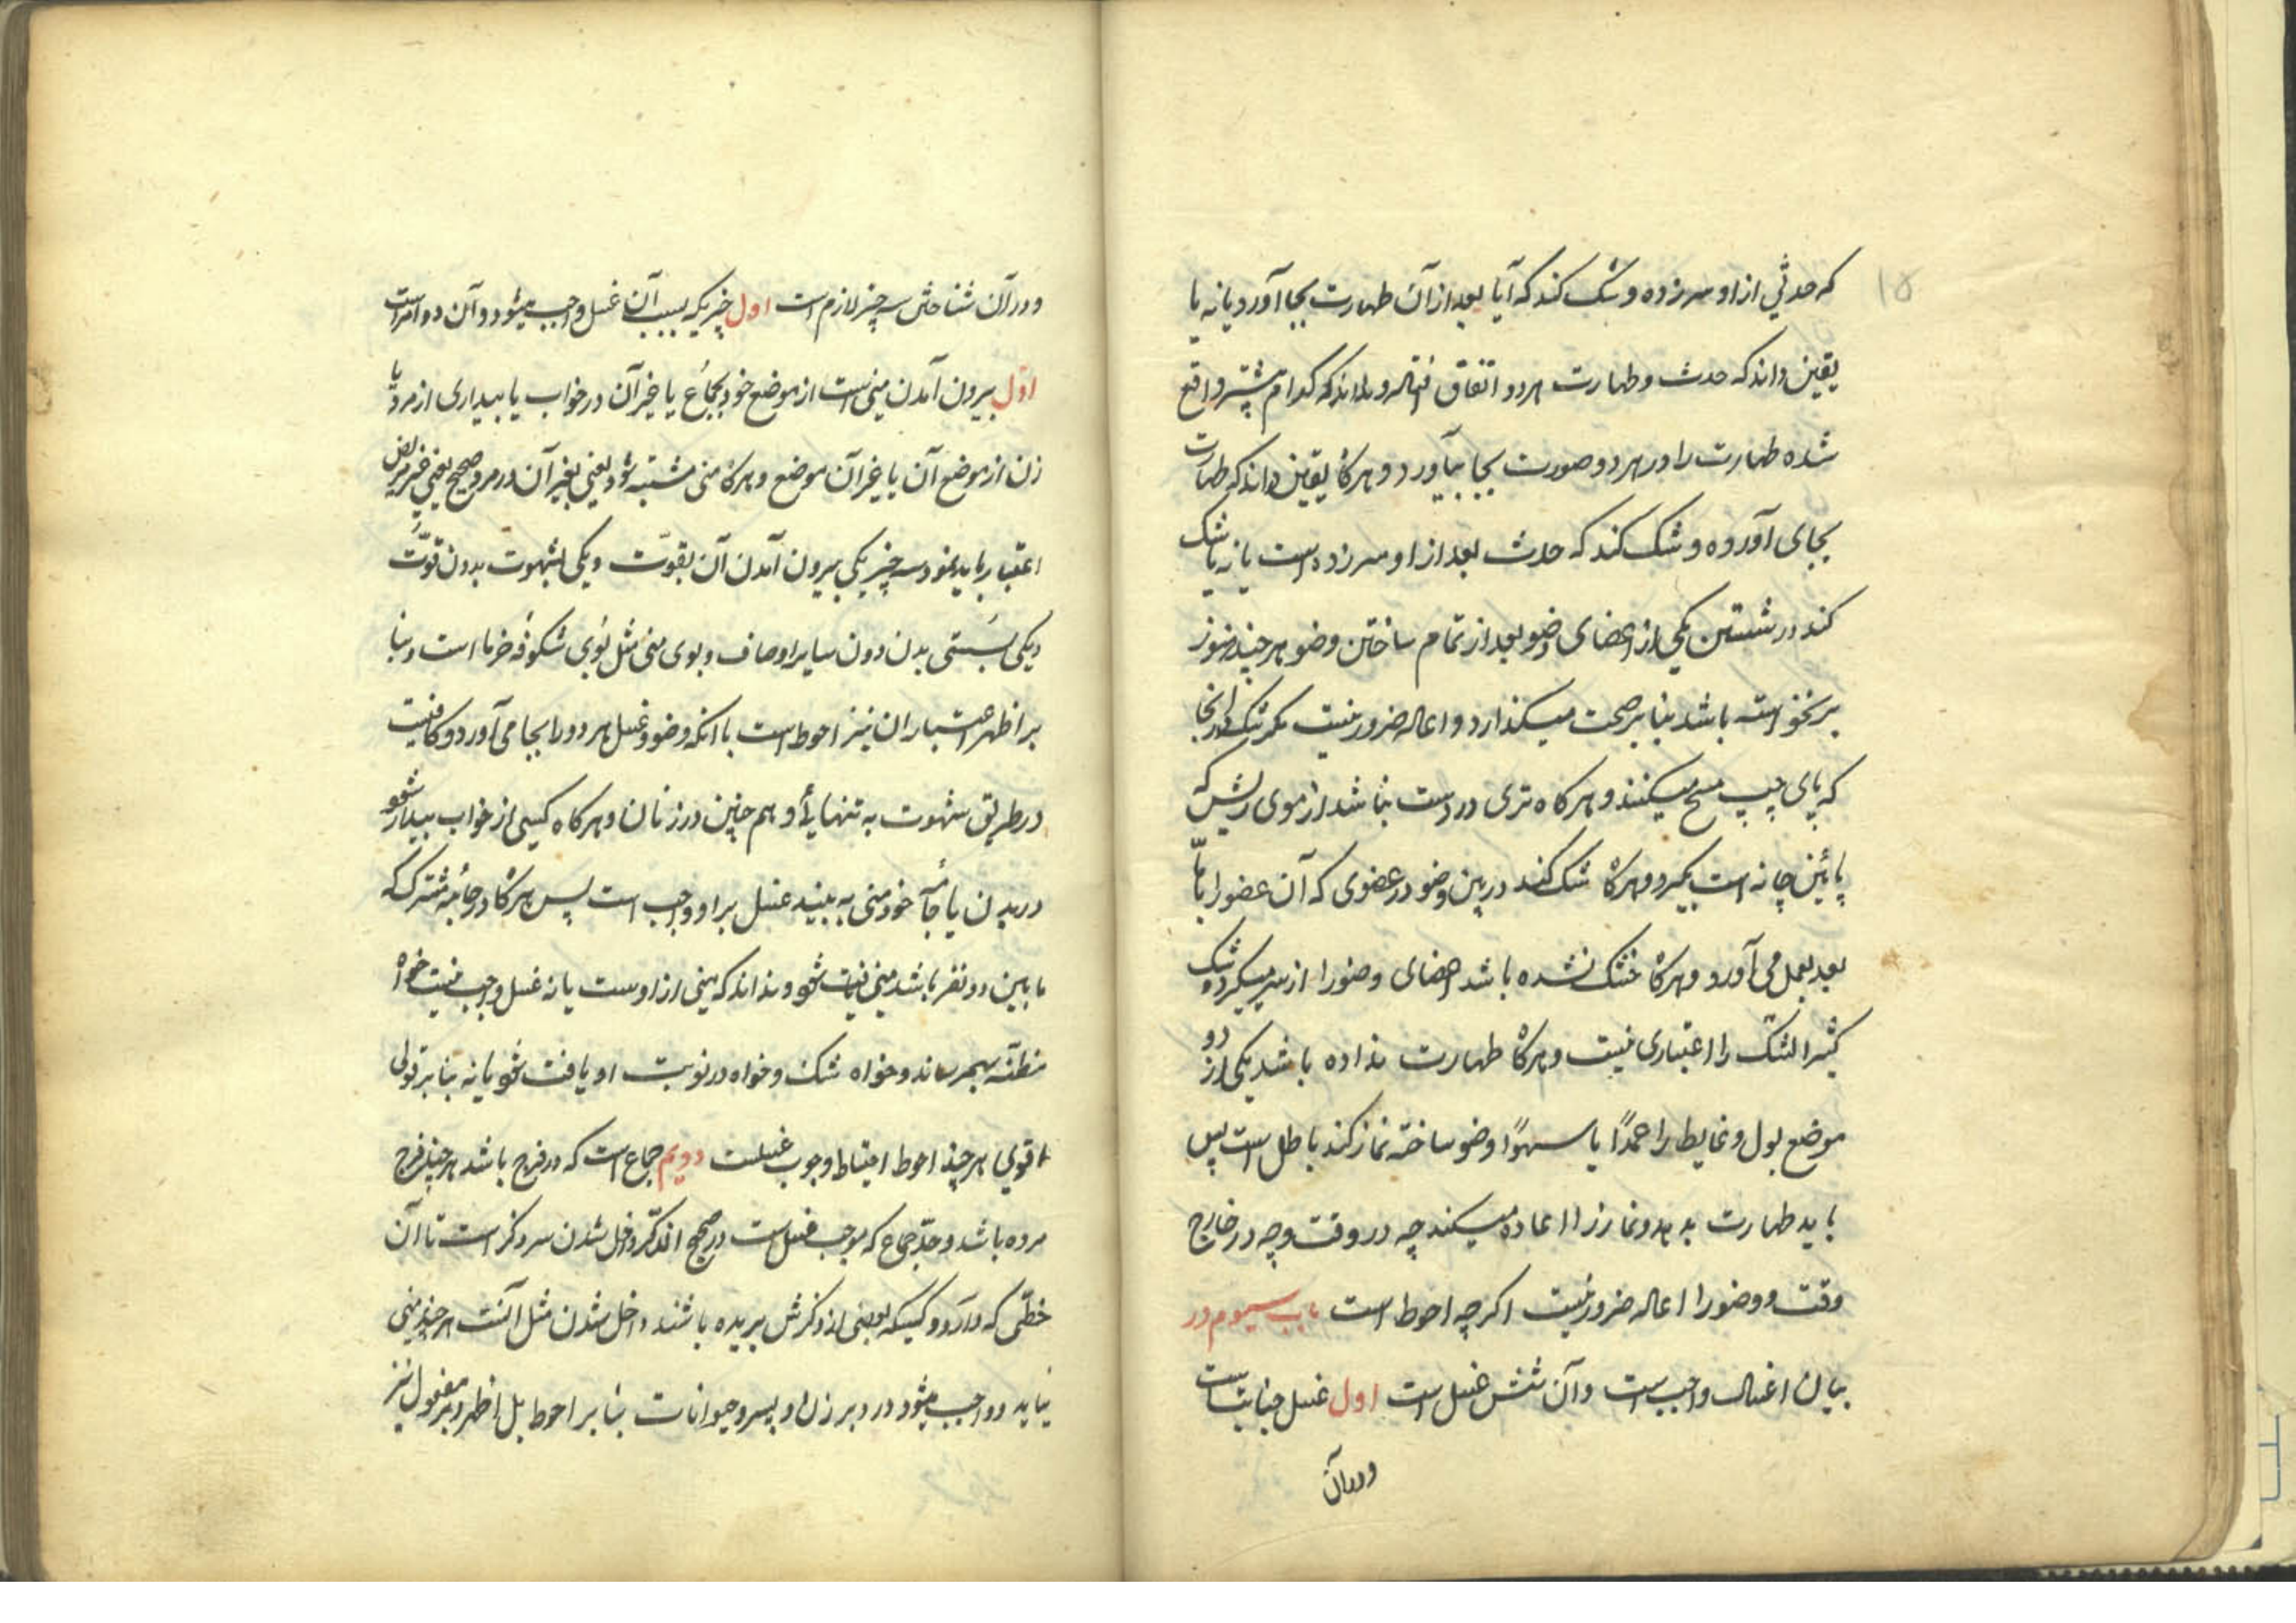 ۱۵
که حدثی از او سرزده و شک کند که آیا بعد از آن طهارت بجا آورد یا نه یا
یقین داند که حدث و طهارت هر دو اتفاق افتاده و نداند که کدام پیشتر واقع
شده طهارت را در هر دو صورت بجا بیاورد و هرکاه یقین داند که طهارت
بجای آورده و شک کند که حدث بعد از او سرزده است یا نه یا شک
کند در شستن یکی از اعضای وضو بعد از تمام ساختن وضو هر چند هنوز
برنخواسته باشد بنا بر صحت میکذارد و اعاده ضرور نیست مکر شک در انجا
که پای چپ مسح میکنند و هرکاه تری در دست نباشد از موی ریش که
پائین چانه است بکیرد و هرکاه شک کند در بین وضو در عضوی که آن عضو را با ما
بعد بعمل می آورد و هرکاه خشک نشده باشد اعضای وضو را از سر میکیرد و شک
کثیر الشک را اعتباری نیست و هرکاه طهارت نداده باشد یکی از دو
موضع بول و غایط را عمدًا یا سهوًا وضو ساخته نماز کند باطل است پس
باید طهارت بدهد و نماز را اعاده میکند چه در وقت و چه در خارج
وقت و وضو را اعاده ضرور نیست اکرچه احوط است باب سیوم در
بیان اغسال واجب است و آن شش غسل است اول غسل جنابت است
و در آن
و در آن شناختن سه چیز لازم است اول چیزیکه بسبب آن غسل واجب میشود و آن دو امر است
اول بیرون آمدن منی است از موضع خود بجماع یا غیر آن در خواب یا بیداری از مرد یا
زن از موضع آن یا غیر آن موضع و هرکاه منی مشتبه شود یعنی بغیر آن در مرد صحیح یعنی غیر مریض
اعتبار باید نمود سه چیز یکی بیرون آمدن آن بقوّت و یکی بشهوت بدون قوّت
و یکی بسستی بدن دون سایر اوصاف و بوی منی مثل بوی شکوفه خرما است و بنا
بر اظهر اعتبار ان نیز احوط است با انکه وضو و غسل هر دو را بجا می آورد و کافیست
در طریق شهوت به تنهائی و هم چنین در زنان و هرکاه کسی از خواب بیدار شود
در بدن یا جامه خود منی به بیند غسل بر او واجب است پس هرکاه در جامه مشترک که
ما بین دو نفر باشد منی یافت شود و نداند که منی از اوست یا نه غسل واجب نیست خواه
مظنّه بهمرساند و خواه شک و خواه در نوبت او یافت شود یا نه بنا بر قولی
اقوی هر چند احوط احتیاط وجوب غسلست دویم جماع است که در فرج باشد هر چند فرج
مرده باشد و حدّ جماع که موجب غسل است در صحیح الذکر داخل شدن سر ذکر است تا آن
خطّی که دارد و کسیکه بعضی از ذکرش بریده باشند داخل شدن مثل آنست هر چند منی
نیاید و واجب میشود در دبر زن و پسر و حیوانات بنا بر احوط بل اظهر و بر مفعول نیز